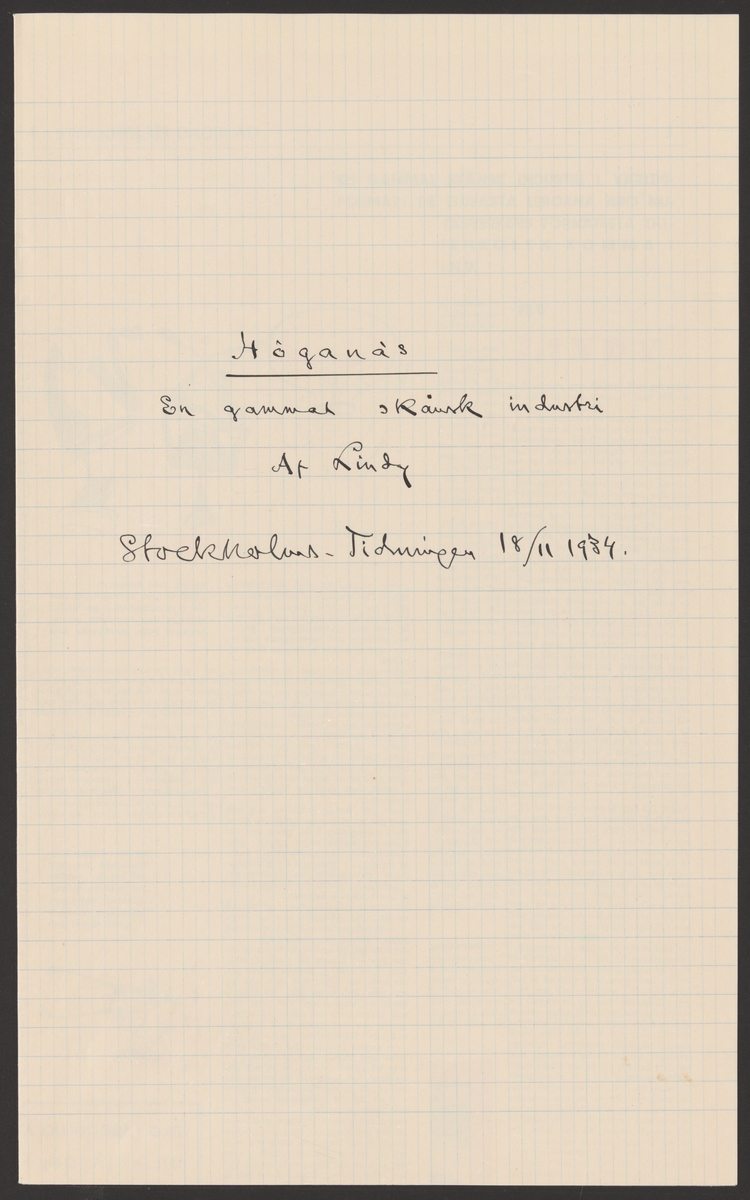 Höganäs
En gammal skånsk industri
Af Lindy
Stockholms-Tidningen 18/11 1934.